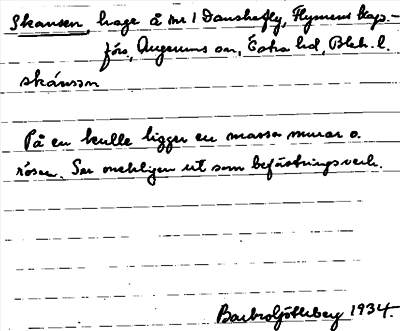 Skansen, hage å nr 1 Danskefly, Flymens kaps-
förs, Augerums sn, Östra hd, Blek. l.
skánsən
På en kulle ligger en massa murar o.
rösen. Ser onekligen ut som befästningsverk.
1934.